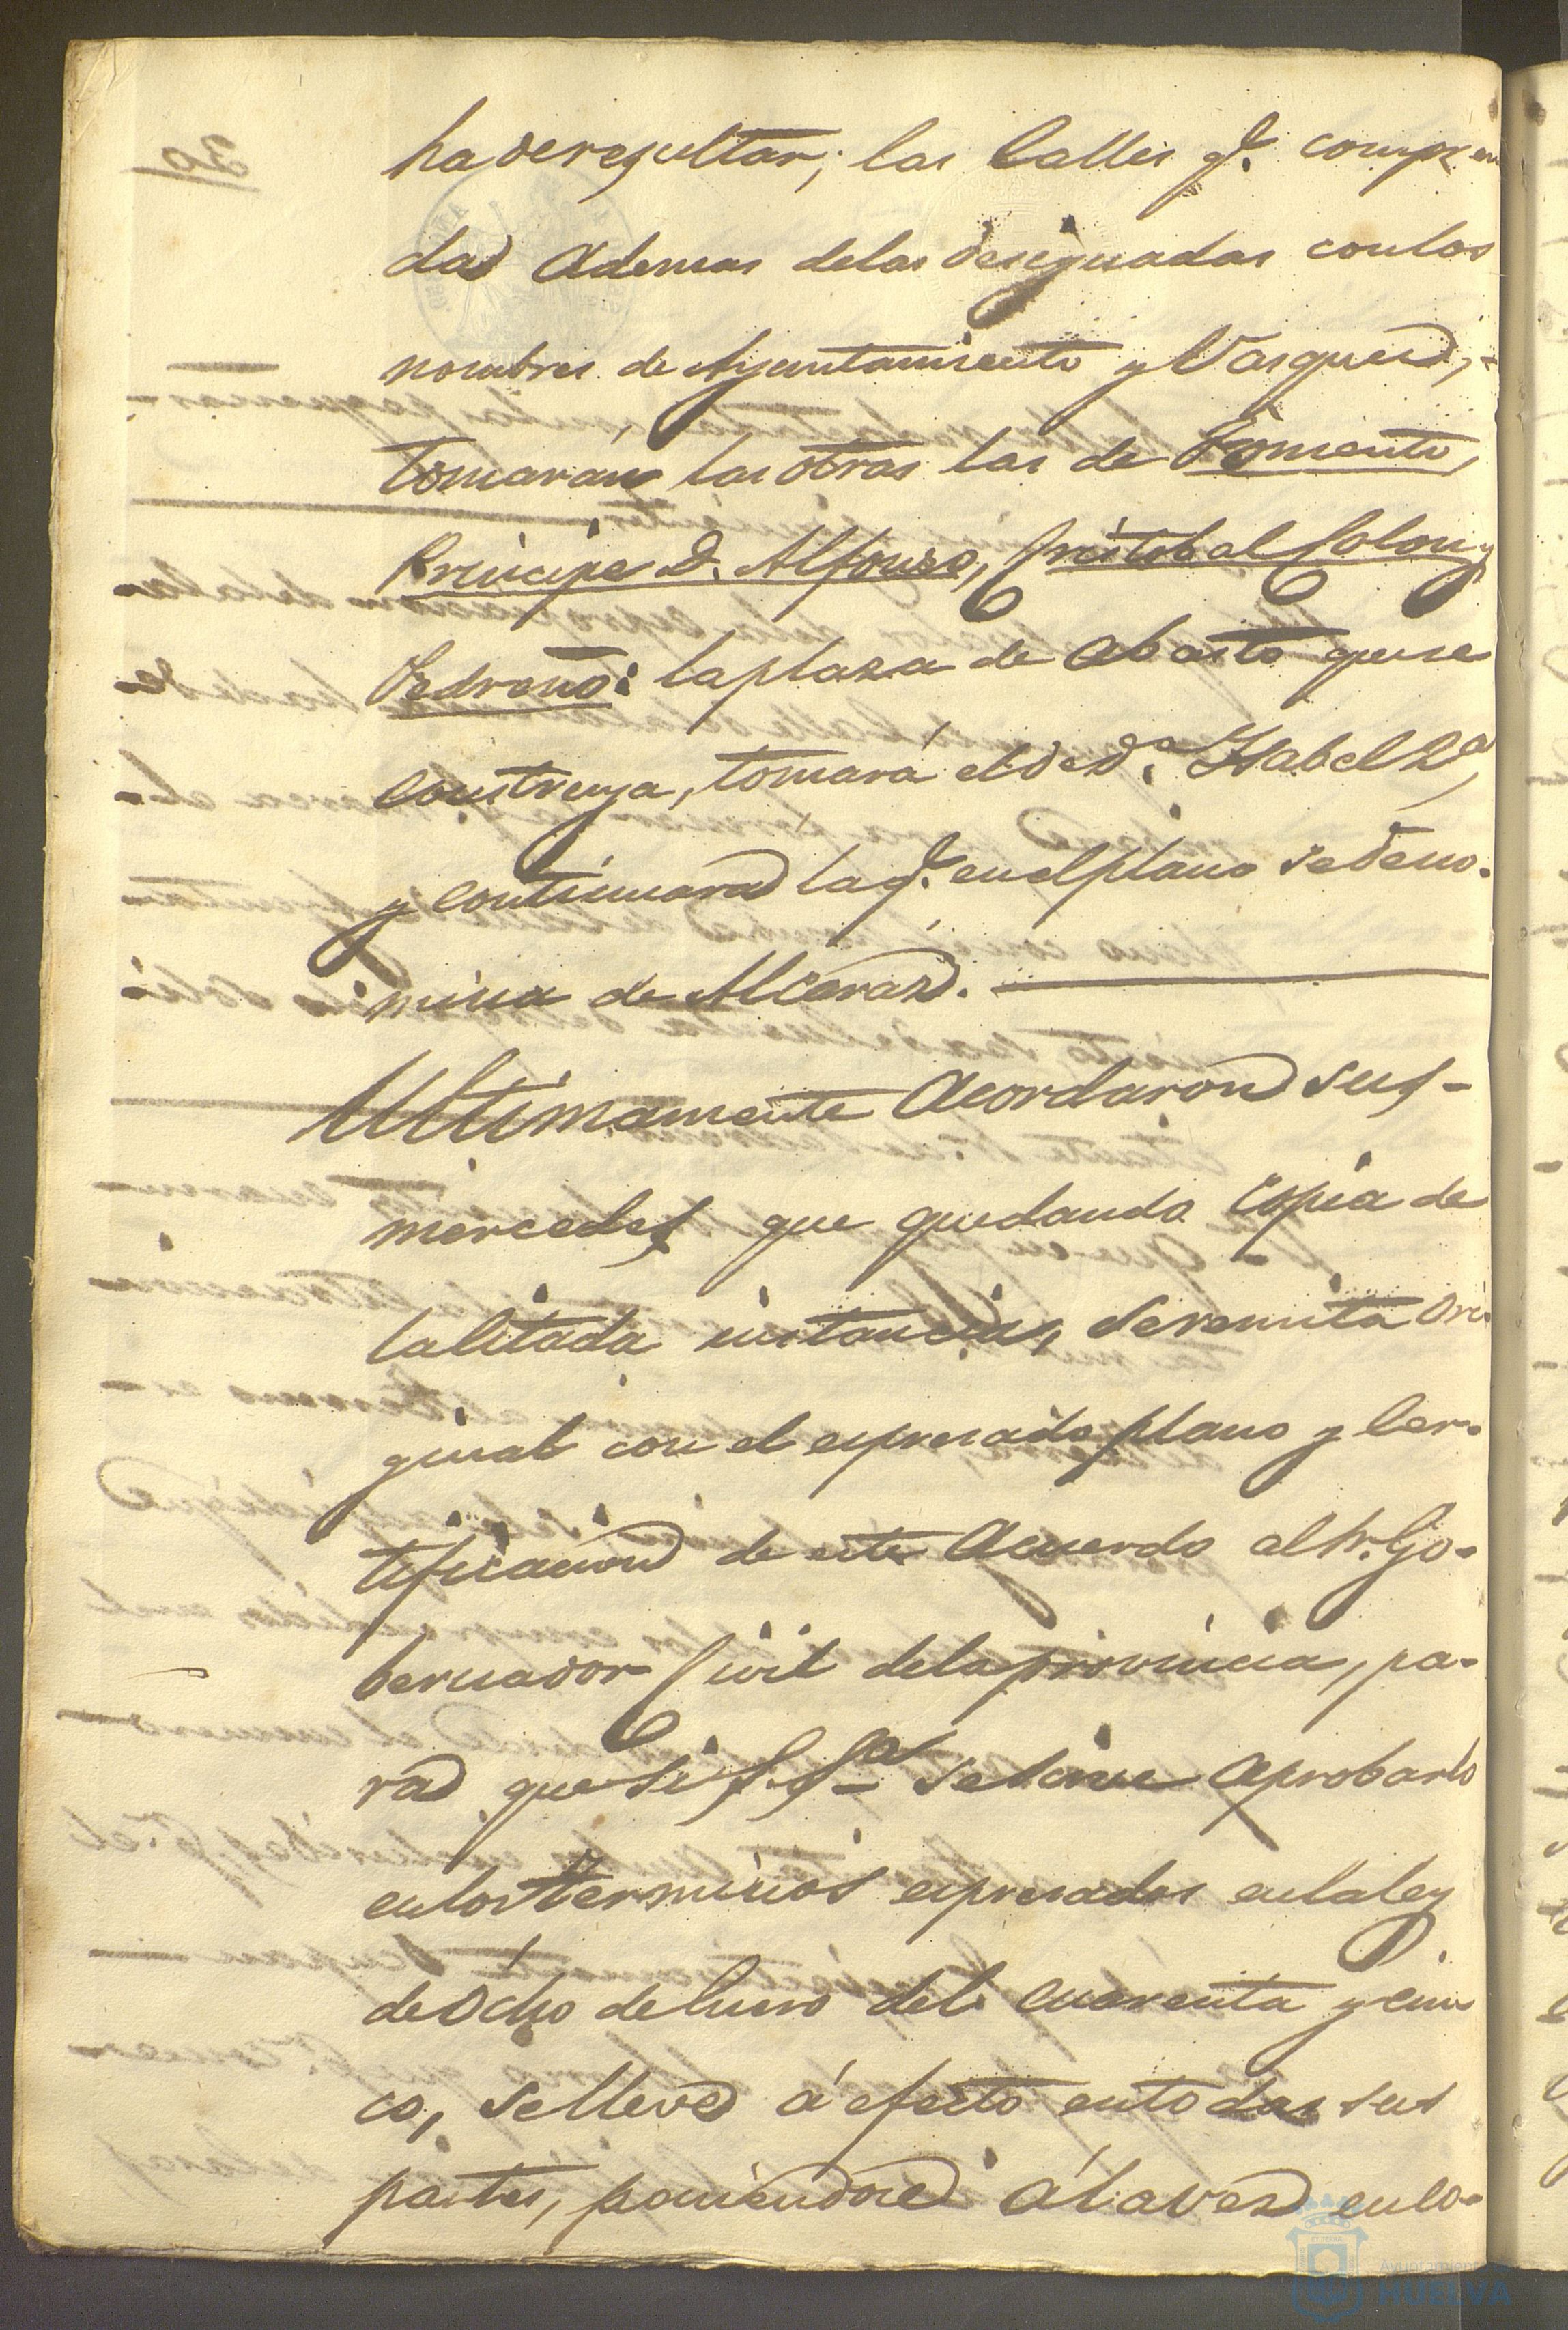 ha de resultar; las Calles q.e compren
das Ademas de las designadas con los
nombres de Ayuntamiento y Vasquez,
tomarán las otras las de Fomento,
Principe D. Alfonso, Cristobal Colon y
Pedreño: la plaza de abasto que se
construya, tomará el de D.ª Isabel 2ª,
y continuará la q.e en el plano se deno-
mina de Alcaraz.
Ultimamente Acordaron sus-
mercedes que quedando copia de
la citada instancia, se remita ori-
ginal con el espresado plano y Cer-
tificacion de este Acuerdo al Sr. Go-
bernador Civil de la provincia, pa-
ra que si S. S.ª se sirve aprobarlo
en los terminos espresados en la ley
de Ocho de Enero del cuarenta y cin
co, se lleve á efecto en todas sus
partes, poniendose á la vez en co-
Ayuntamiento
HUELVA